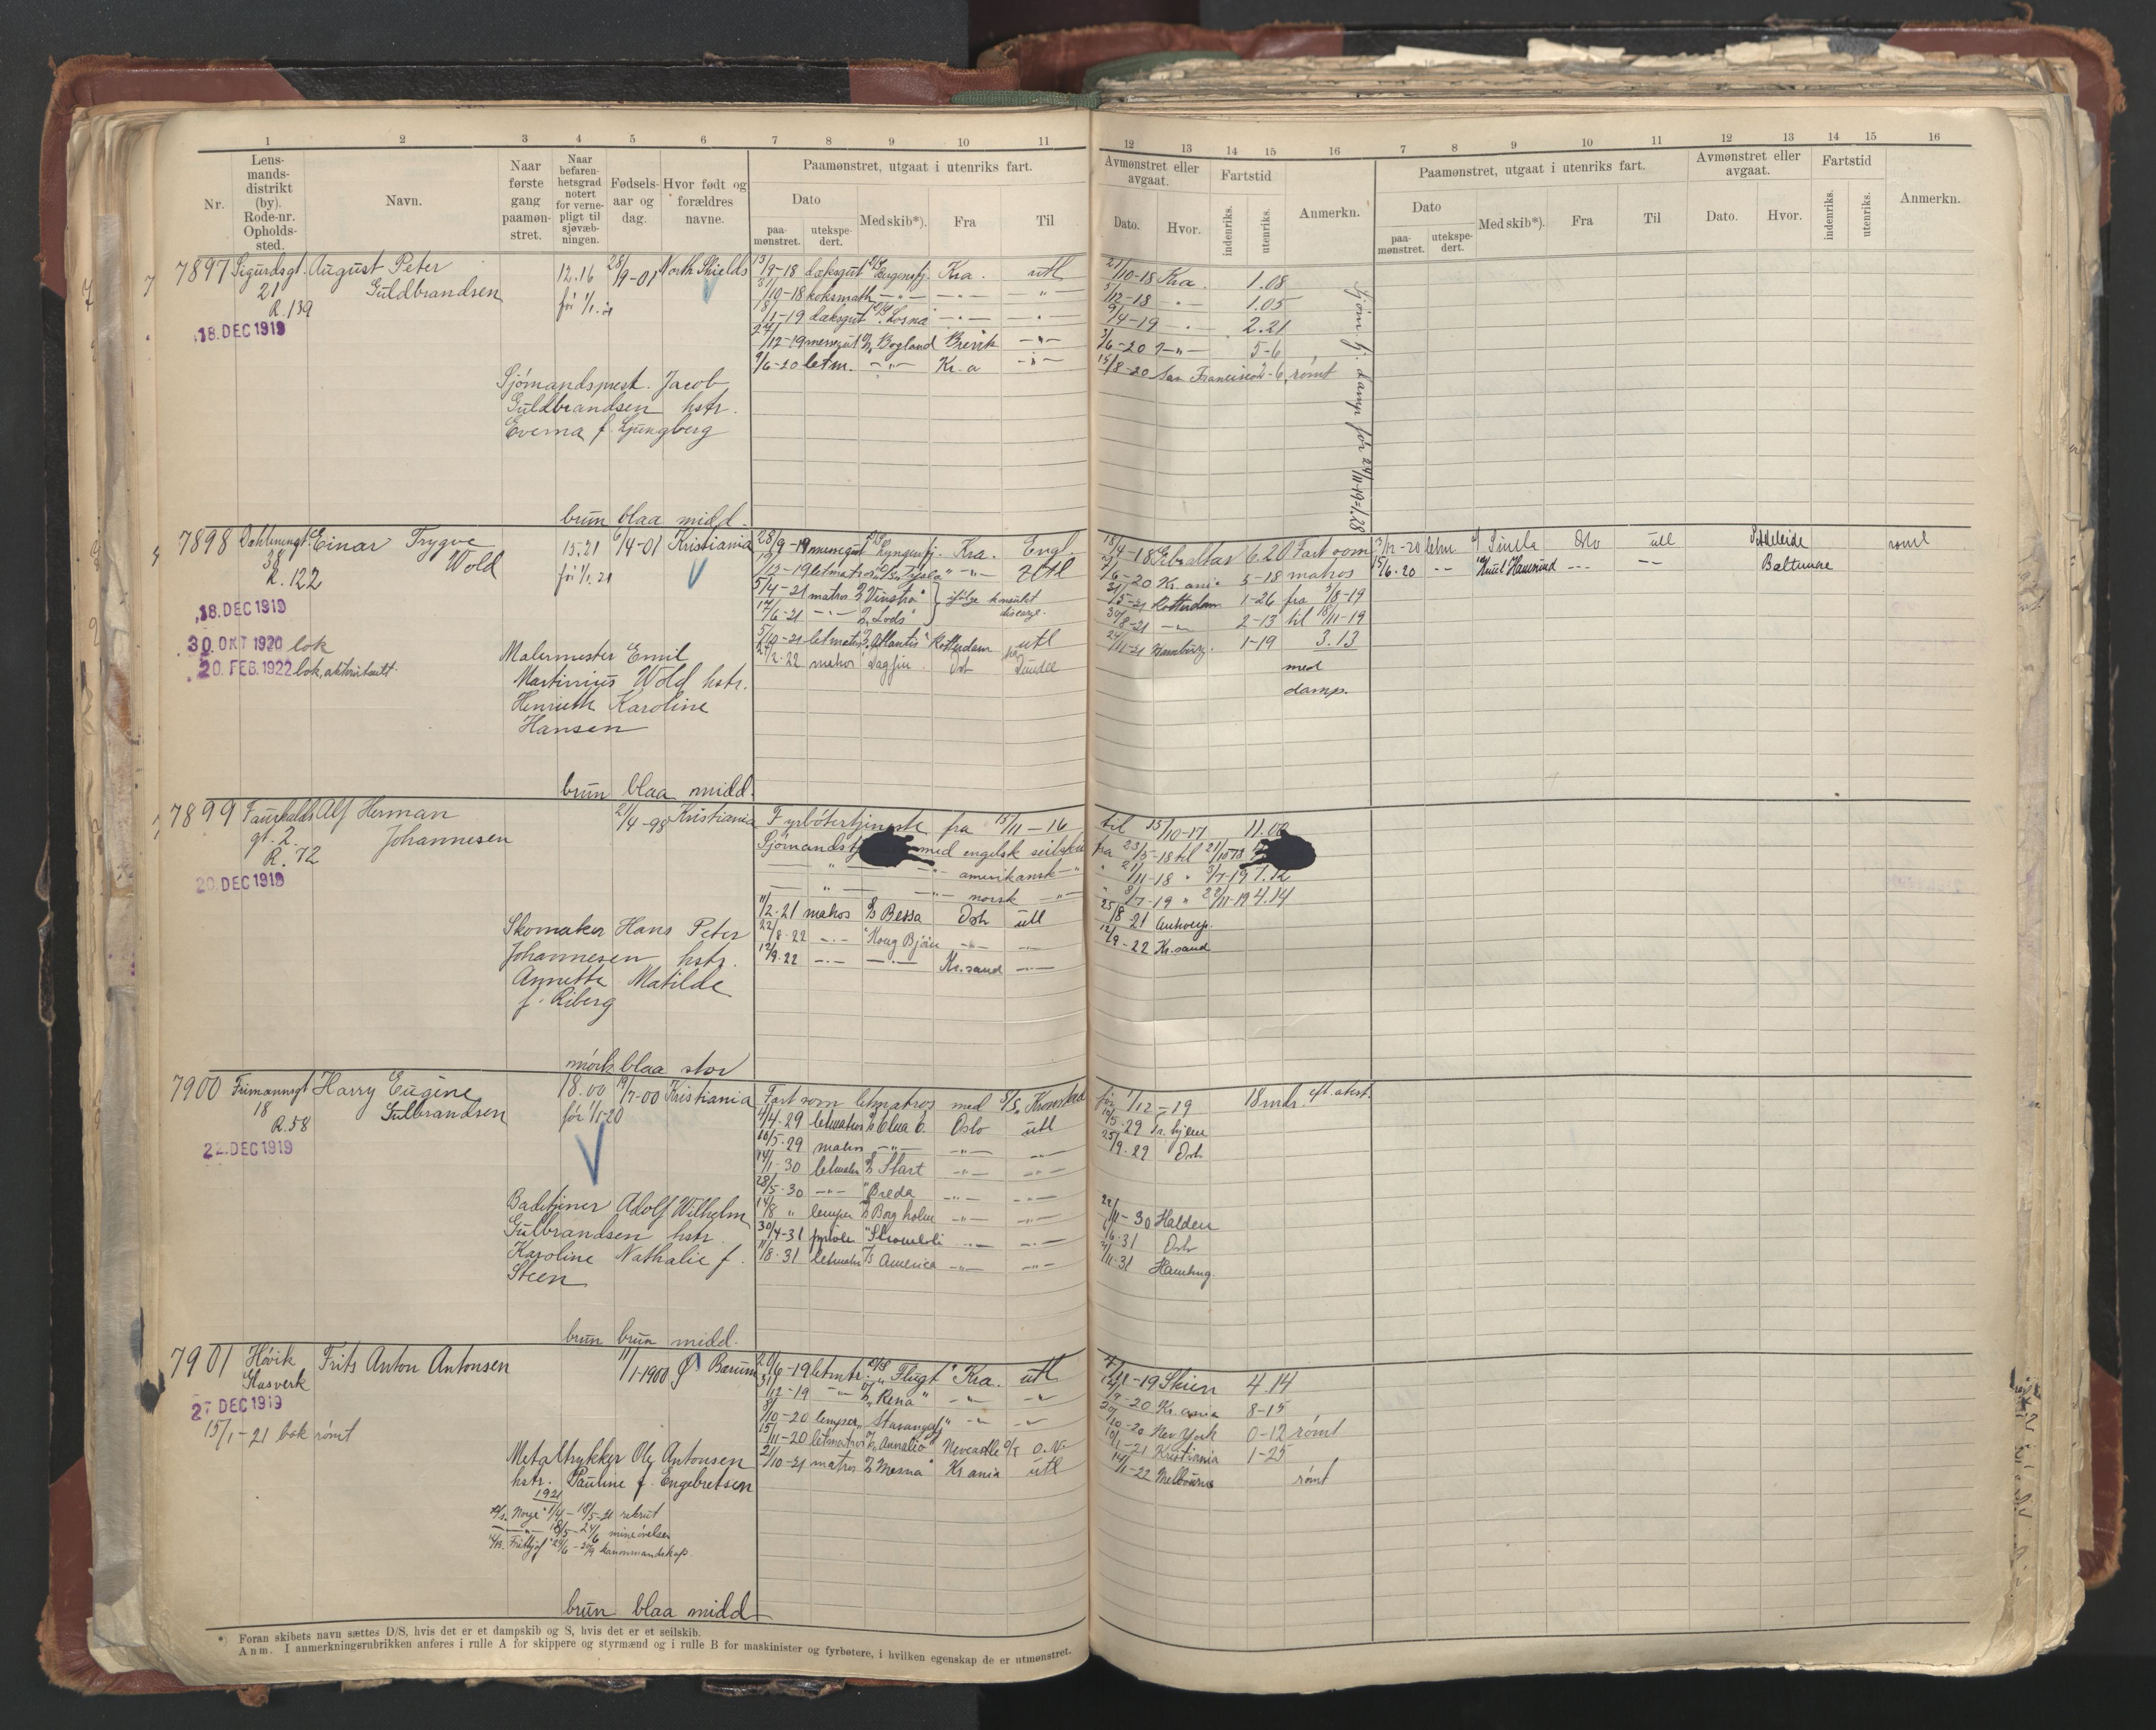 1 2 3 4 5 6 7 8 9 10 11
Nr.
Lens-
mands-
distrikt
(by).
Rode-nr.
Opholds-
sted.
Navn.
Naar
første
gang
paamøn-
stret.
Naar
befaren-
hetsgrad
notert
for verne-
pligt til
sjøvæb-
ningen.
Fødsels-
aar og
dag.
Hvor født og
forældres
navne.
Paamønstret, utgaat i utenriks fart.
Dato
paa-
mønstret.
utekspe-
dert.
Med skib*).
Fra
Til
12 13 14 15 16
Avmønstret eller
avgaat.
Dato.
Hvor.
Fartstid
indenriks.
utenriks.
Anmerkn.
7 8 9 10 11 12 13 14 15 16
Paamønstret, utgaat i utenriks fart.
Dato
paa-
mønstret.
utekspe-
dert.
Med skib*).
Fra
Til
Avmønstret eller
avgaat.
Dato.
Hvor.
Fartstid
indenriks.
utenriks.
Anmerkn.
7897 Sigurdsgt. August Peter
21 Guldbrandsen
R. 139
18. DEC 1919
12.16
før 1/1.21
28/9-01 North Shields
Sjömandsprest. Jacob
Guldbrandsen hstr.
Everna f. Ljungberg
brun blaa midd.
13/9-18 dæksgut D/S Bergensfj. Kra. utl 21/10-18 Kra. 1.08
/10-18 koksmath -"- -"- " /12-18 -"- 1.05
18/1-19 dæksgut D/S Losna -"- -"- 9/4-19 -"- 2.21
27/12-19 messegut Bogland Brevik -"- 3/6-20 5-6
9/6-20 letm. -"- Kr.a -"- 15/8-20 San Francisco 2-6, römt
7898 Dahlenengt. Einar Trygve
38 Wold
R. 122
18. DEC 1919
30. OKT 1920 bok
20. FEB. 1922 bok,
15.21
før 1/1.21
6/4-01 Kristiania
Malermester Emil
Martinius Wold hstr.
Henriette Karoline
Hansen
brun blaa midd.
28/9-19 messegut D/S Lyngenfj. Kra. Engl. 18/4-18 Gibraltar 6.20 Fart som
/12-19 letmatros -"- utl /6-20 Kr.ania 5-18 matros
5/4-21 matros Vinstra ifølge konsulat 31/5-21 Rotterdam 1-26 fra 5/8-19
17/6-21 -"- Lods 30/8-21 -"- 2-13 til 18/11-19
5/10-21 letmatros Atlantis Rotterdam utl 24/11-21 Hamburg. 1-19 3.13
2/2.22 matros Dagfin Oslo Dundee med
damp.
/12-20 letm. Oslo utl römt
15/6.20 -"- -"- -"- Baltimore
7899 Fauchalds Alf Herman
gt. 2. Johannesen
R. 72
20. DEC 1919
21/4-98 Kristiania
Skomaker Hans Peter
Johannesen hstr.
Annette Matilde
f. Riberg
mörk blaa stor
Fyrbötertjeneste fra 15/11-16 til 15/10-17 11.00
med engelsk seilskib fra 23/5-18 til
-"- -"- amerikansk -"- 21/11-18 " 3/7-19 7.12
-"- -"- norsk -"- 8/7-19 " 22/11-19 4.14
11/2-21 matros Bessa Oslo utl 25/8-21 Antwerp.
22/8.22 -"- Kong Bjørn -"- -"- 12/9-22 Kr.sand
12/9.22 -"- -"- Kr.sand -"-
7900 Frimannsgt Harry Eugene
18 Gulbrandsen
R. 58
22. DEC 1919
18.00
før 1/1-20
19/7-00 Kristiania
Badetjener Adolf Wilhelm
Gulbrandsen hstr.
Karoline Nathalie f.
Steen
brun brun midd.
Fart som letmatros med S/S Kronstad før 1/12-19 18 mdr. eft. atest.
4/4.29 letmatros Oslo utl 10/5-29
10/5-29 matros -"- -"- -"- 25/9.29 Oslo
14/1-30 letmatr Start -"- -"-
28/5-30 -"- Breda -"- -"-
14/8 " lemper Borgholm -"- -"- 22/11-30 Halden
30/4-31 fyrbøter Stromboli -"- -"- /6.31 Oslo
11/8.31 letmatr America -"- -"- 2/11.31 Hamburg.
7901 Høvik Frits Anton Antonsen
Glasverk
27 DEC 1919
15/1-21 bok römt
11/1-1900 Ø Bærum
Metaltrykker Ole Antonsen
hstr. Pauline f. Engebretsen
1921
Norge 1/4-18/5-21 rekrut
-"- 18/5-24/6 mineøvelser
Fridtjof 24/6-20/9 kanonmandskap
brun blaa midd
21/6-19 letmtr. "Flugt" Kra. utl /11-19 Skien 4.14
31/12-19 -"- "Rena" -"- -"- /9-20 Kr.ania 8-15
8/10-20 lemper Stavangerfj -"- -"- 20/10-20 New York 0-12 römt
15/11-20 letmatros Newcastle 10/1-21 Kristiania 1-25
21/10-21 matros Mesna Kr.ania utl 14/1-22 Melbourne römt
*) Foran skibets navn sættes D/S, hvis det er et dampskib og S, hvis det er et seilskib.
Anm. I anmerkningsrubrikken anføres i rulle A for skippere og styrmænd og i rulle B for maskinister og fyrbøtere, i hvilken egenskap de er utmønstret.